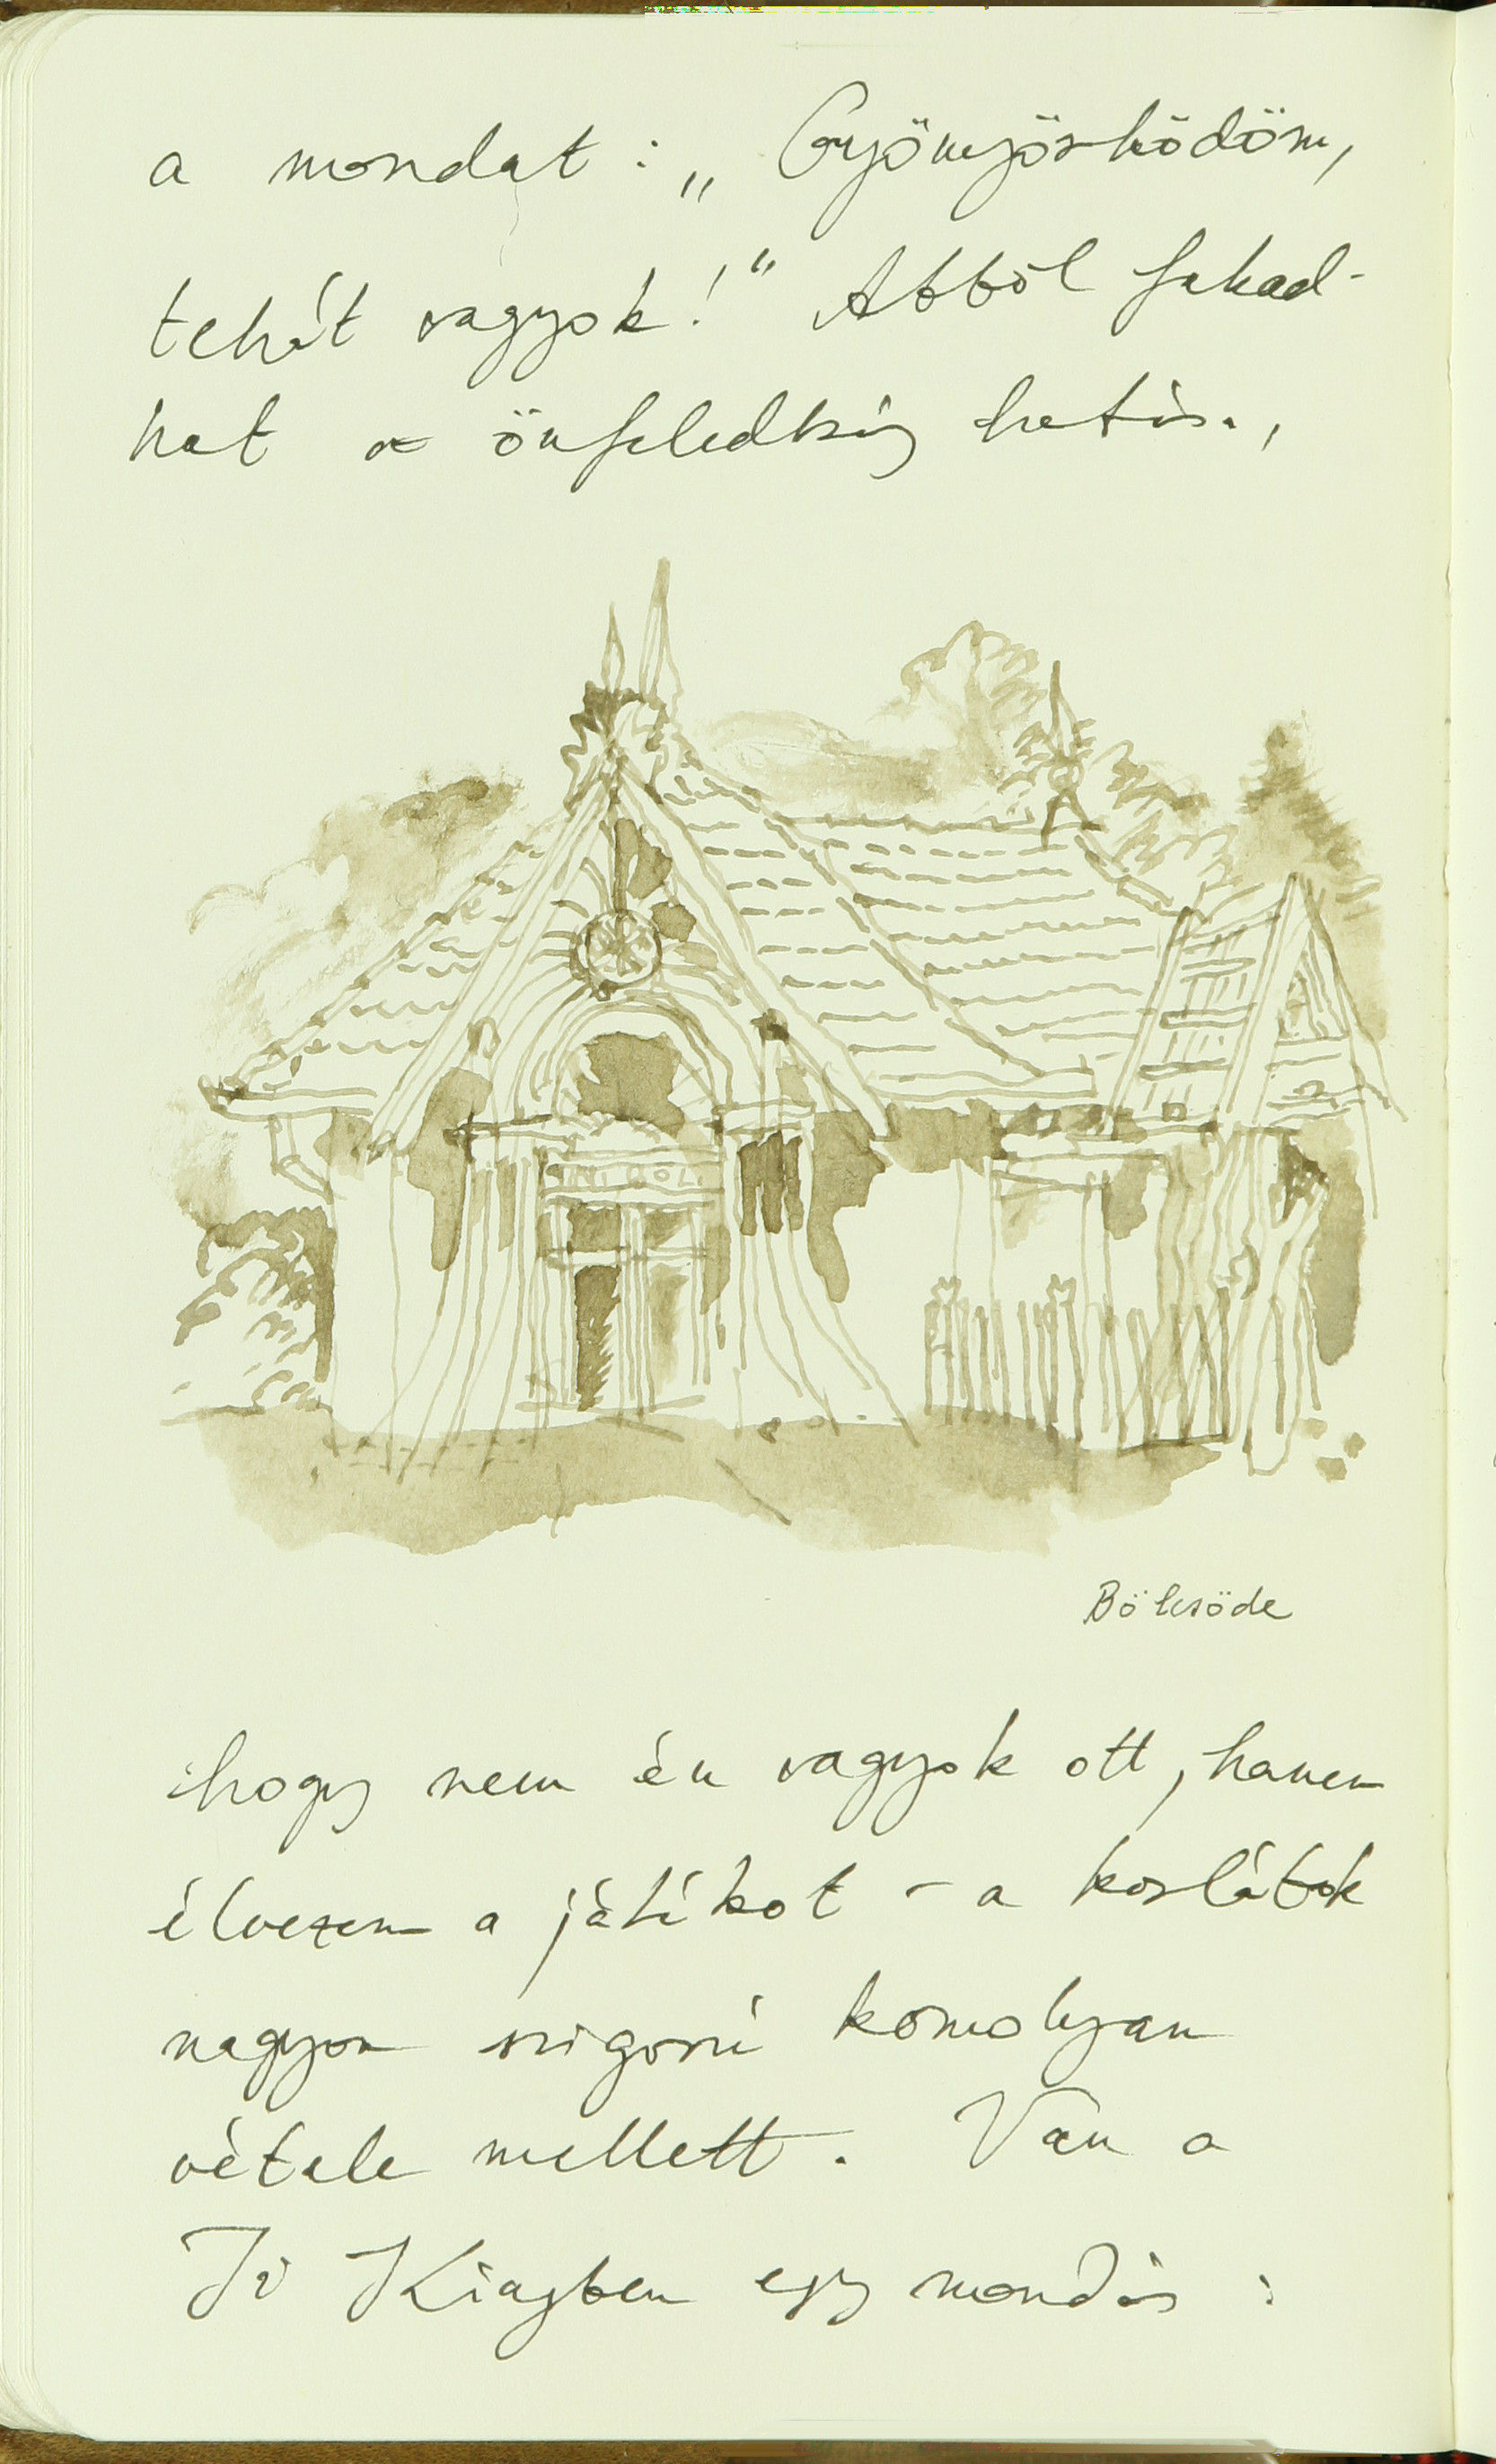 a mondat: „Gyönyörködöm,
tehát vagyok!" Abból fakad-
hat az önfeledtség hatása,
Bölcsöde
hogy nem én vagyok ott, hanem
élvezem a játékot - a korlátok
nagyon szigorú komolyan
vétele mellett. Van a
Ji Kingben egy mondás: